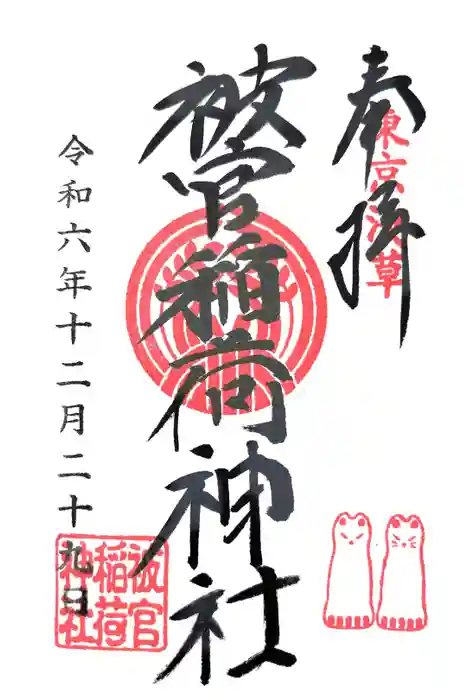 奉拝
東京浅草
被官稲荷神社
令和六年十二月二十九日
被官
稲荷
神社